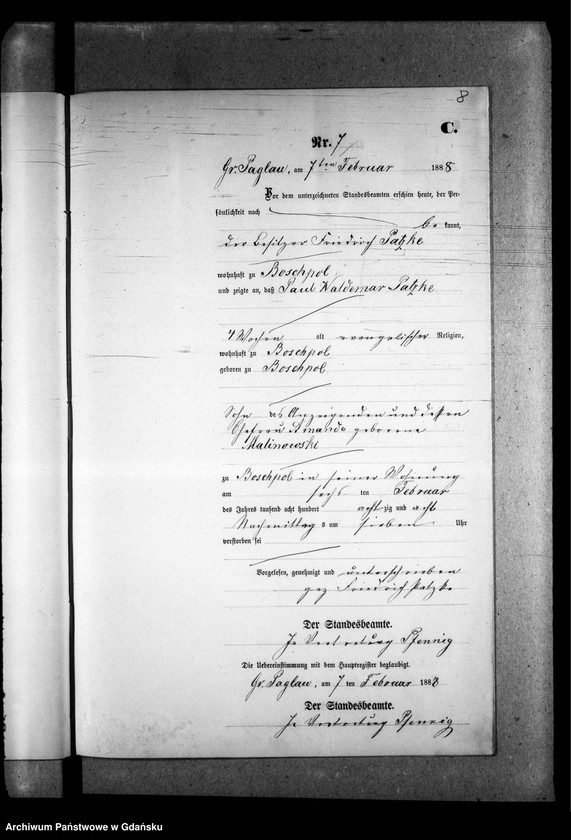 8
C.
Nr. 7
Gr. Paglau, am 7ten Februar 1888
Vor dem unterzeichneten Standesbeamten erschien heute, der Per-
sönlichkeit nach
be kannt,
der Besitzer Friedrich Patzke
wohnhaft zu Boschpol
und zeigte an, daß Paul Waldemar Patzke
4 Wochen alt evangelischer Religion,
wohnhaft zu Boschpol
geboren zu Boschpol
Sohn des Anzeigenden und dessen
Ehefrau Amande geborene
Malinowski
zu Boschpol in seiner Wohnung
am sechs ten Februar
des Jahres tausend acht hundert acht zig und acht
Nachmittag s um sieben Uhr
verstorben sei
Vorgelesen, genehmigt und unterschrieben
gez Friedrich Patzke
Der Standesbeamte.
In Vertretung Pfennig
Die Uebereinstimmung mit dem Hauptregister beglaubigt.
Gr. Paglau, am 7 ten Februar 1888
Der Standesbeamte.
In Vertretung Pfennig
Archiwum Państwowe w Gdańsku